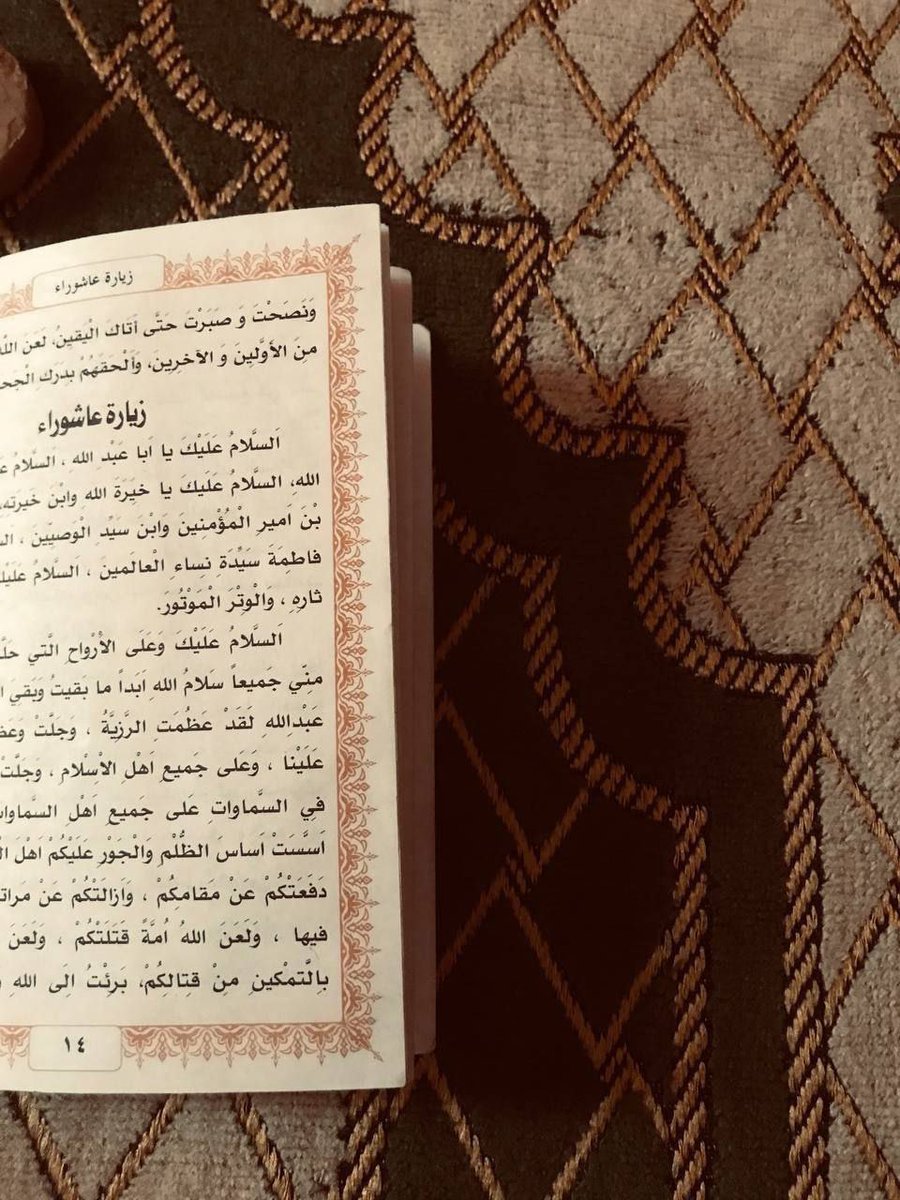 زيارة عاشوراء
وَنَصَحْتَ وَ صَبَرْتَ حَتَّى أتَاكَ الْيَقينُ، لَعَنَ
مِنَ الأوَّلينَ وَ الآخرينَ، وَألْحَقَهُمْ بدرك
زيارة عاشوراء
اَلسَّلامُ عَلَيْكَ يا اَبا عَبْد الله ، السَّلامُ
الله، السَّلامُ عَلَيْكَ يا خيَرَة الله وابْنَ خَيرته،
بْنَ اَمير الْمُؤْمِنينَ وَابْنَ سَيِّد الْوَصيّينَ ،
فاطِمَةَ سَيِّدَة نِساءِ الْعالَمينَ ، السَّلامُ عَلَيْكَ
ثارهِ ، وَالْوتْرَ الْمَوْتُورَ.
اَلسَّلامُ عَلَيْكَ وَعَلَى الأرْواحِ الَّتي
مِنّي جَميعاً سَلامُ الله اَبَداً ما بَقيتُ وَبَقىَ
عَبْدالله لَقَدْ عَظُمَتِ الرَّزِيَّةُ ، وَجَلَّتْ
عَلَيْنا ، وَعَلى جَميعِ اَهْل الإسْلام ، وَجَلَّتْ
فِي السَّماوات عَلَى جَميعِ اَهْلِ السَّماوات
اَسَّسَتْ اَساسَ الظُّلْمِ وَالْجَوْرِ عَلَيكُمْ اَهْلَ
دَفَعَتْكُمْ عَنْ مَقامِكُمْ ، وَاَزالَتْكُمْ عَنْ
فيها ، وَلَعَنَ اللهُ اُمَّةً قَتَلَتْكُمْ ، وَلَعَنَ
بِالتَّمْكينِ مِنْ قِتالِكُمْ، بَرِئْتُ اِلَى اللهِ
١٤